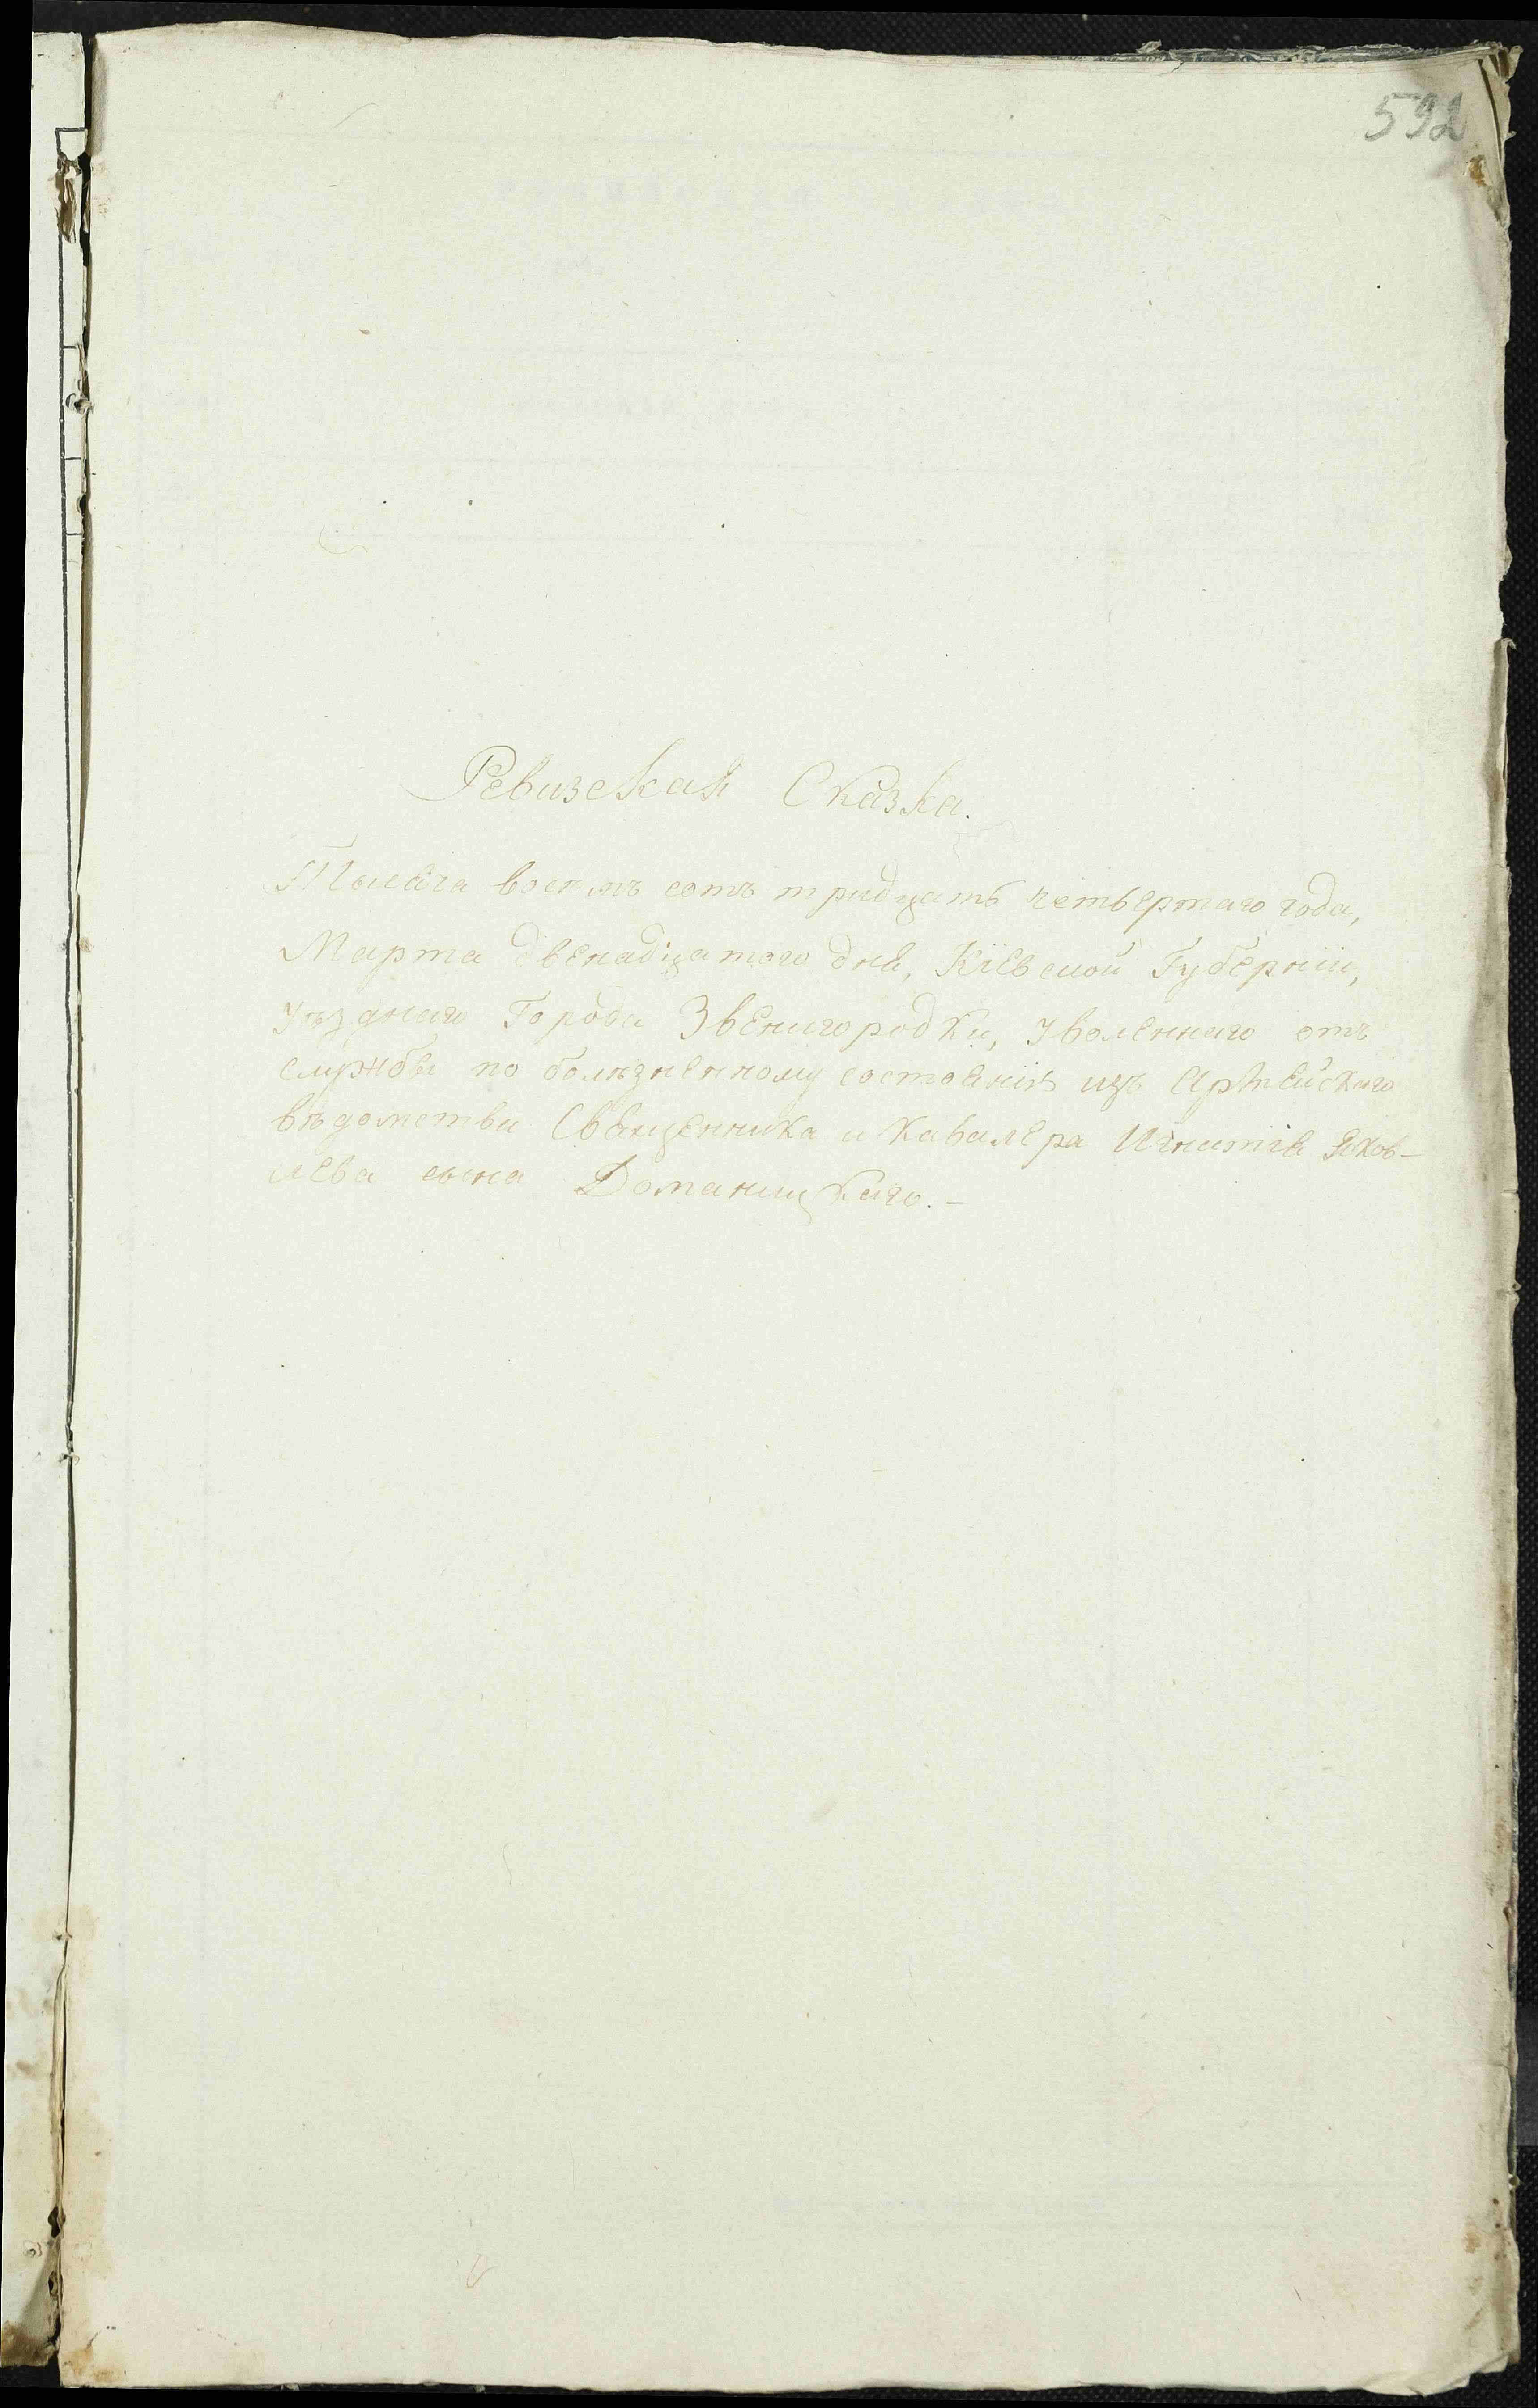 592
Ревизская Сказка.
Тысяча восемь сотъ тридцать четвертаго года,
Марта двенадцатого дня, Кіевской Губерніи,
уѣзднаго Города Звенигородки, уволеннаго отъ
службы по болѣзненному состоянію изъ Армейскаго
вѣдомства Священника и Кавалера Игнатія Яков-
лева сына Доманицкаго.-